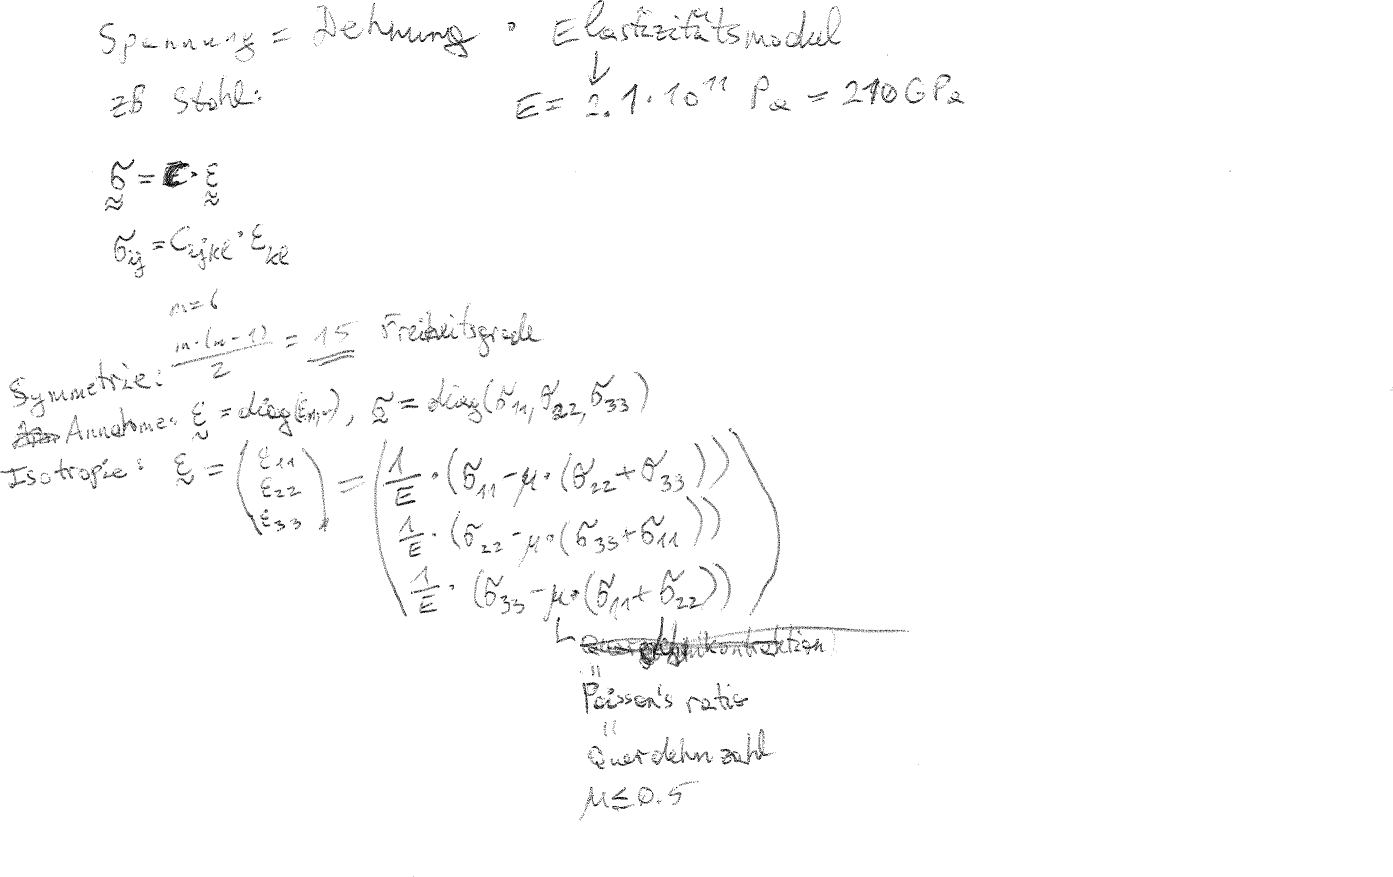 Spannung = Dehnung · Elastizitätsmodul
zB Stahl: E = 2.1·10¹¹ Pa = 210 GPa
σ = C · ε
σij = Cijkl · εkl
m=6
Symmetrie: m·(m-1)/2 = 15 Freiheitsgrade
Annahme: ε = diag(ε11, ..), σ = diag(σ11, σ22, σ33)
Isotropie: ε = (ε11 ε22 ε33) = (1/E · (σ11 - μ · (σ22 + σ33))
1/E · (σ22 - μ · (σ33 + σ11))
1/E · (σ33 - μ · (σ11 + σ22)))
"
Poisson's ratio
"
Querdehnzahl
μ ≤ 0.5